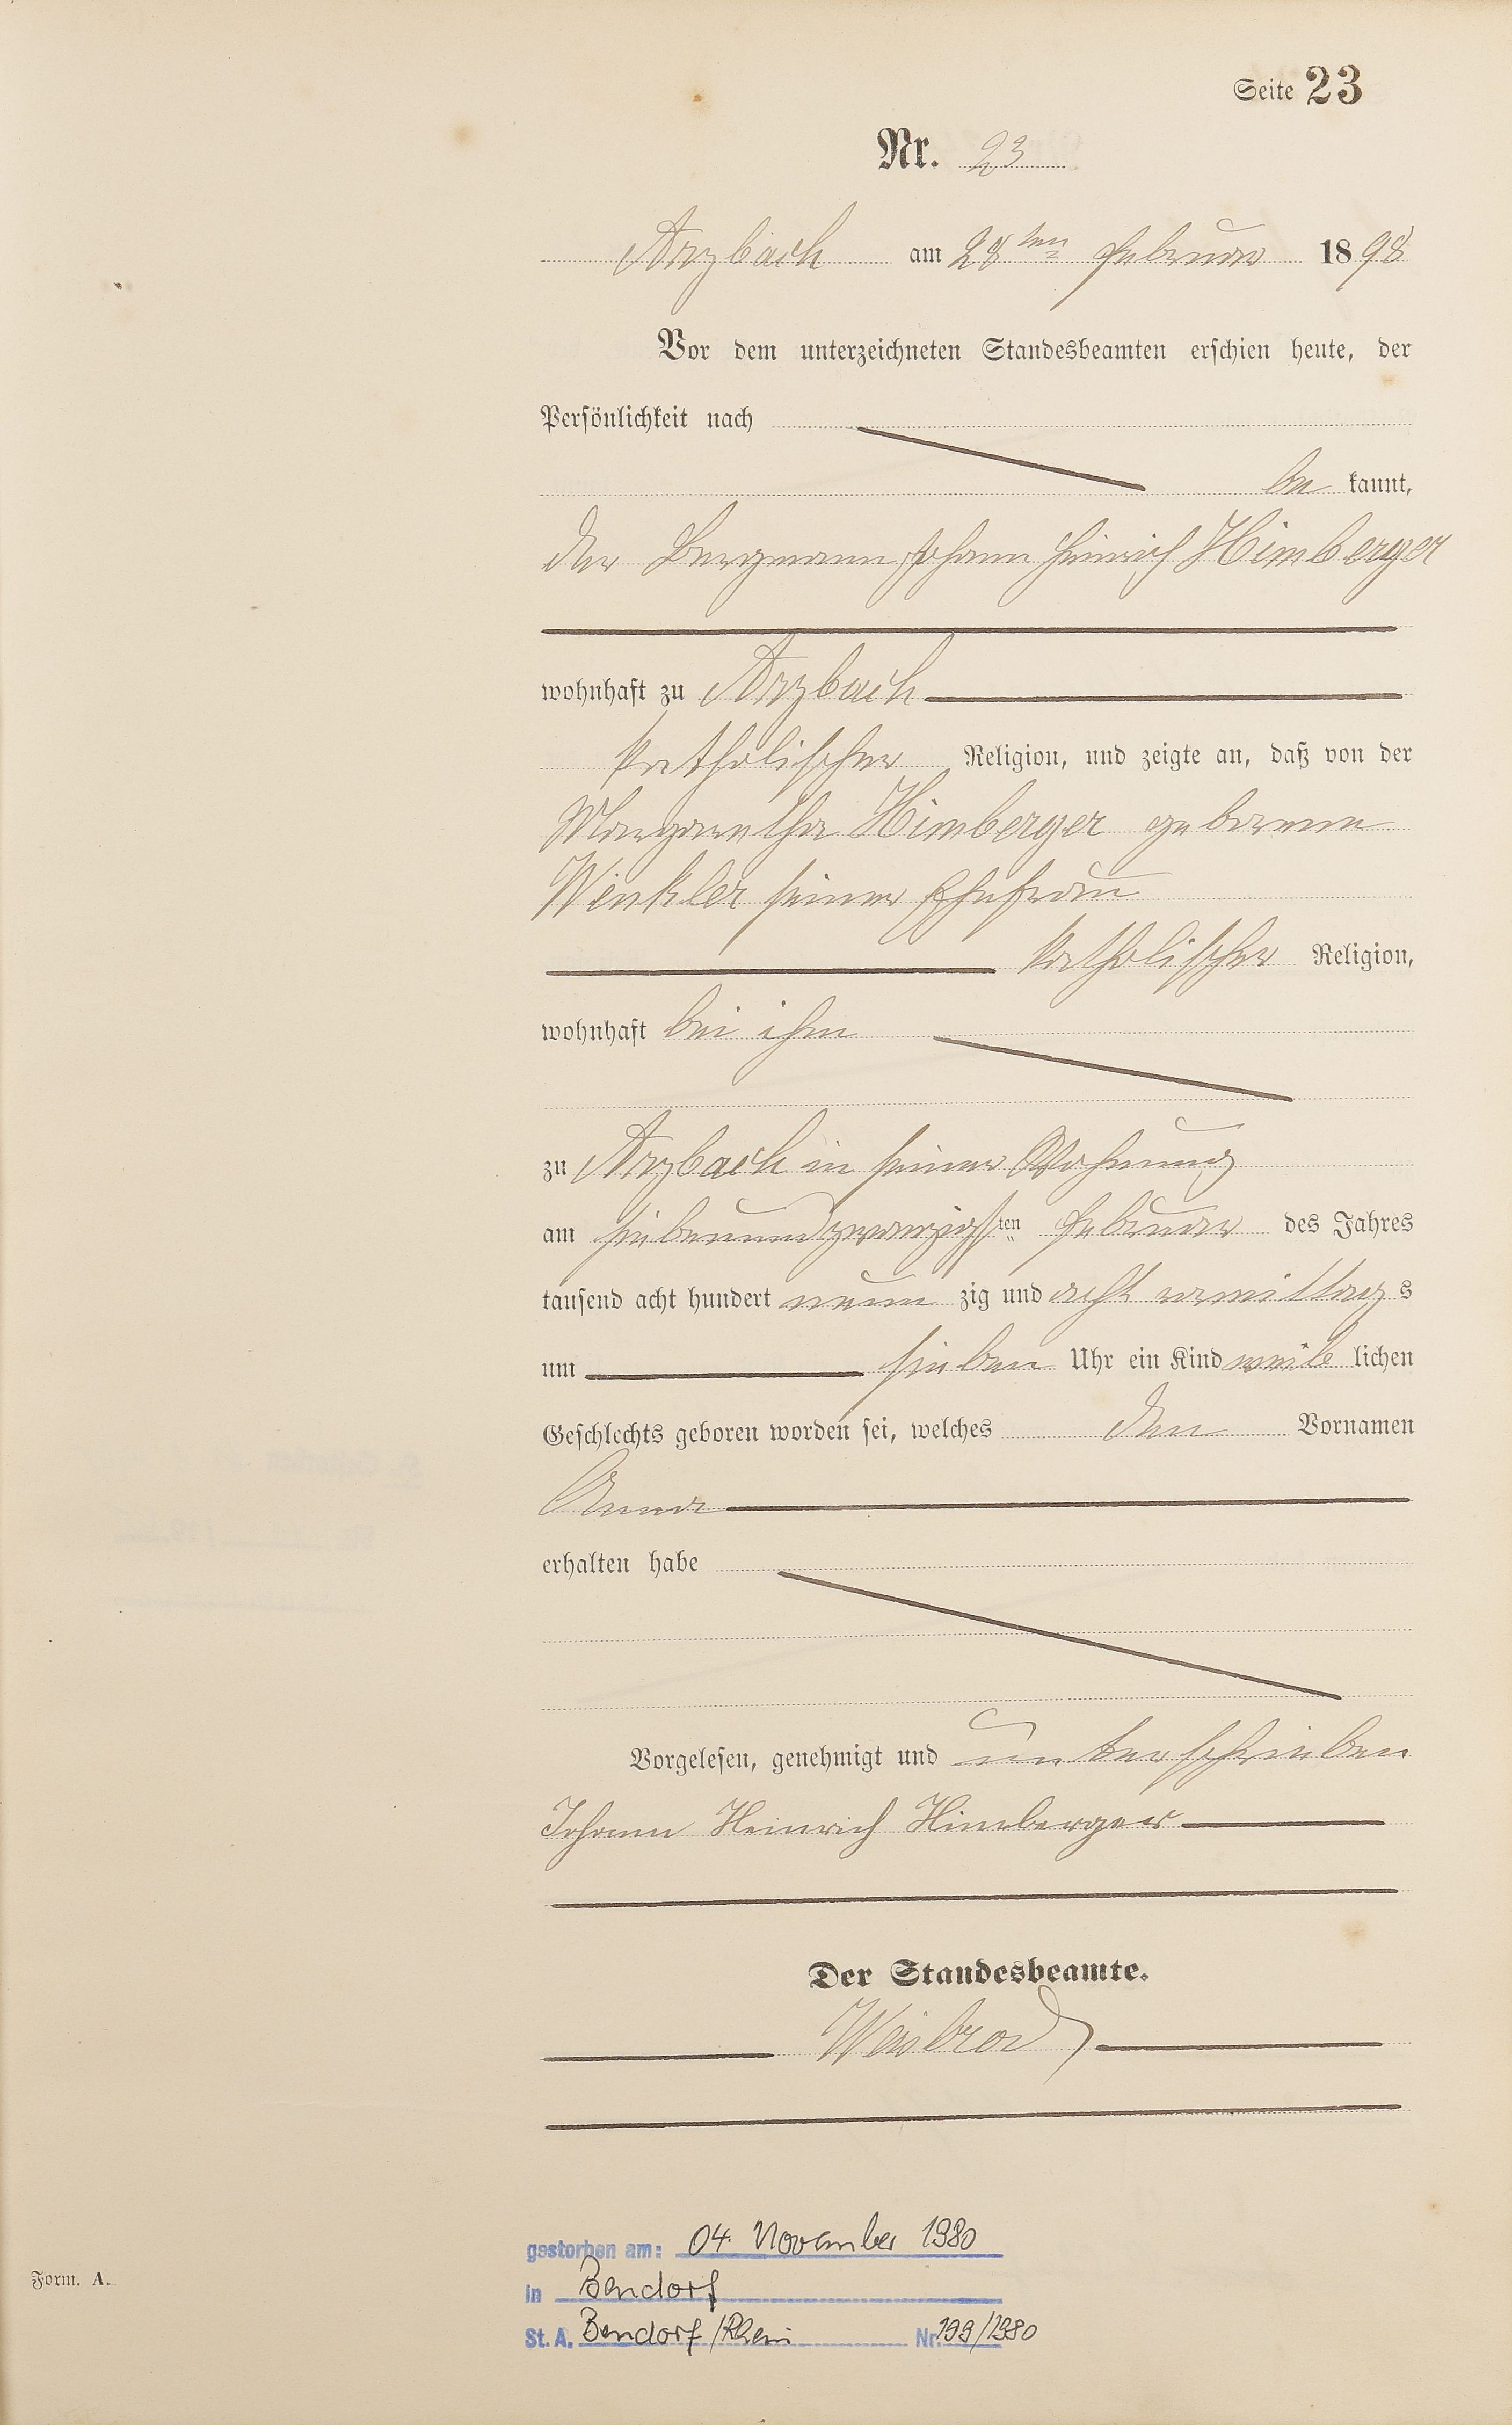 Seite 23
Nr. 23
Arzbach am 28ten Februar 1898
Vor dem unterzeichneten Standesbeamten erschien heute, der
Persönlichkeit nach
be kannt,
der Bergmann Johann Heinrich Himberger
wohnhaft zu Arzbach
katholischer Religion, und zeigte an, daß von der
Margaretha Himberger geborene
Winkler seiner Ehefrau
katholischer Religion,
wohnhaft bei ihm
zu Arzbach in seiner Wohnung
am siebenundzwanzigsten Februar des Jahres
tausend acht hundert neun zig und acht vormittags
um sieben Uhr ein Kind weib lichen
Geschlechts geboren worden sei, welches den Vornamen
Anna
erhalten habe
Vorgelesen, genehmigt und unterschrieben
Johann Heinrich Himberger
Der Standesbeamte.
Weisbrod
gestorben am: 04. November 1980
in Bendorf
Form. A.
St. A. Bendorf/Rhein Nr. 199/1980